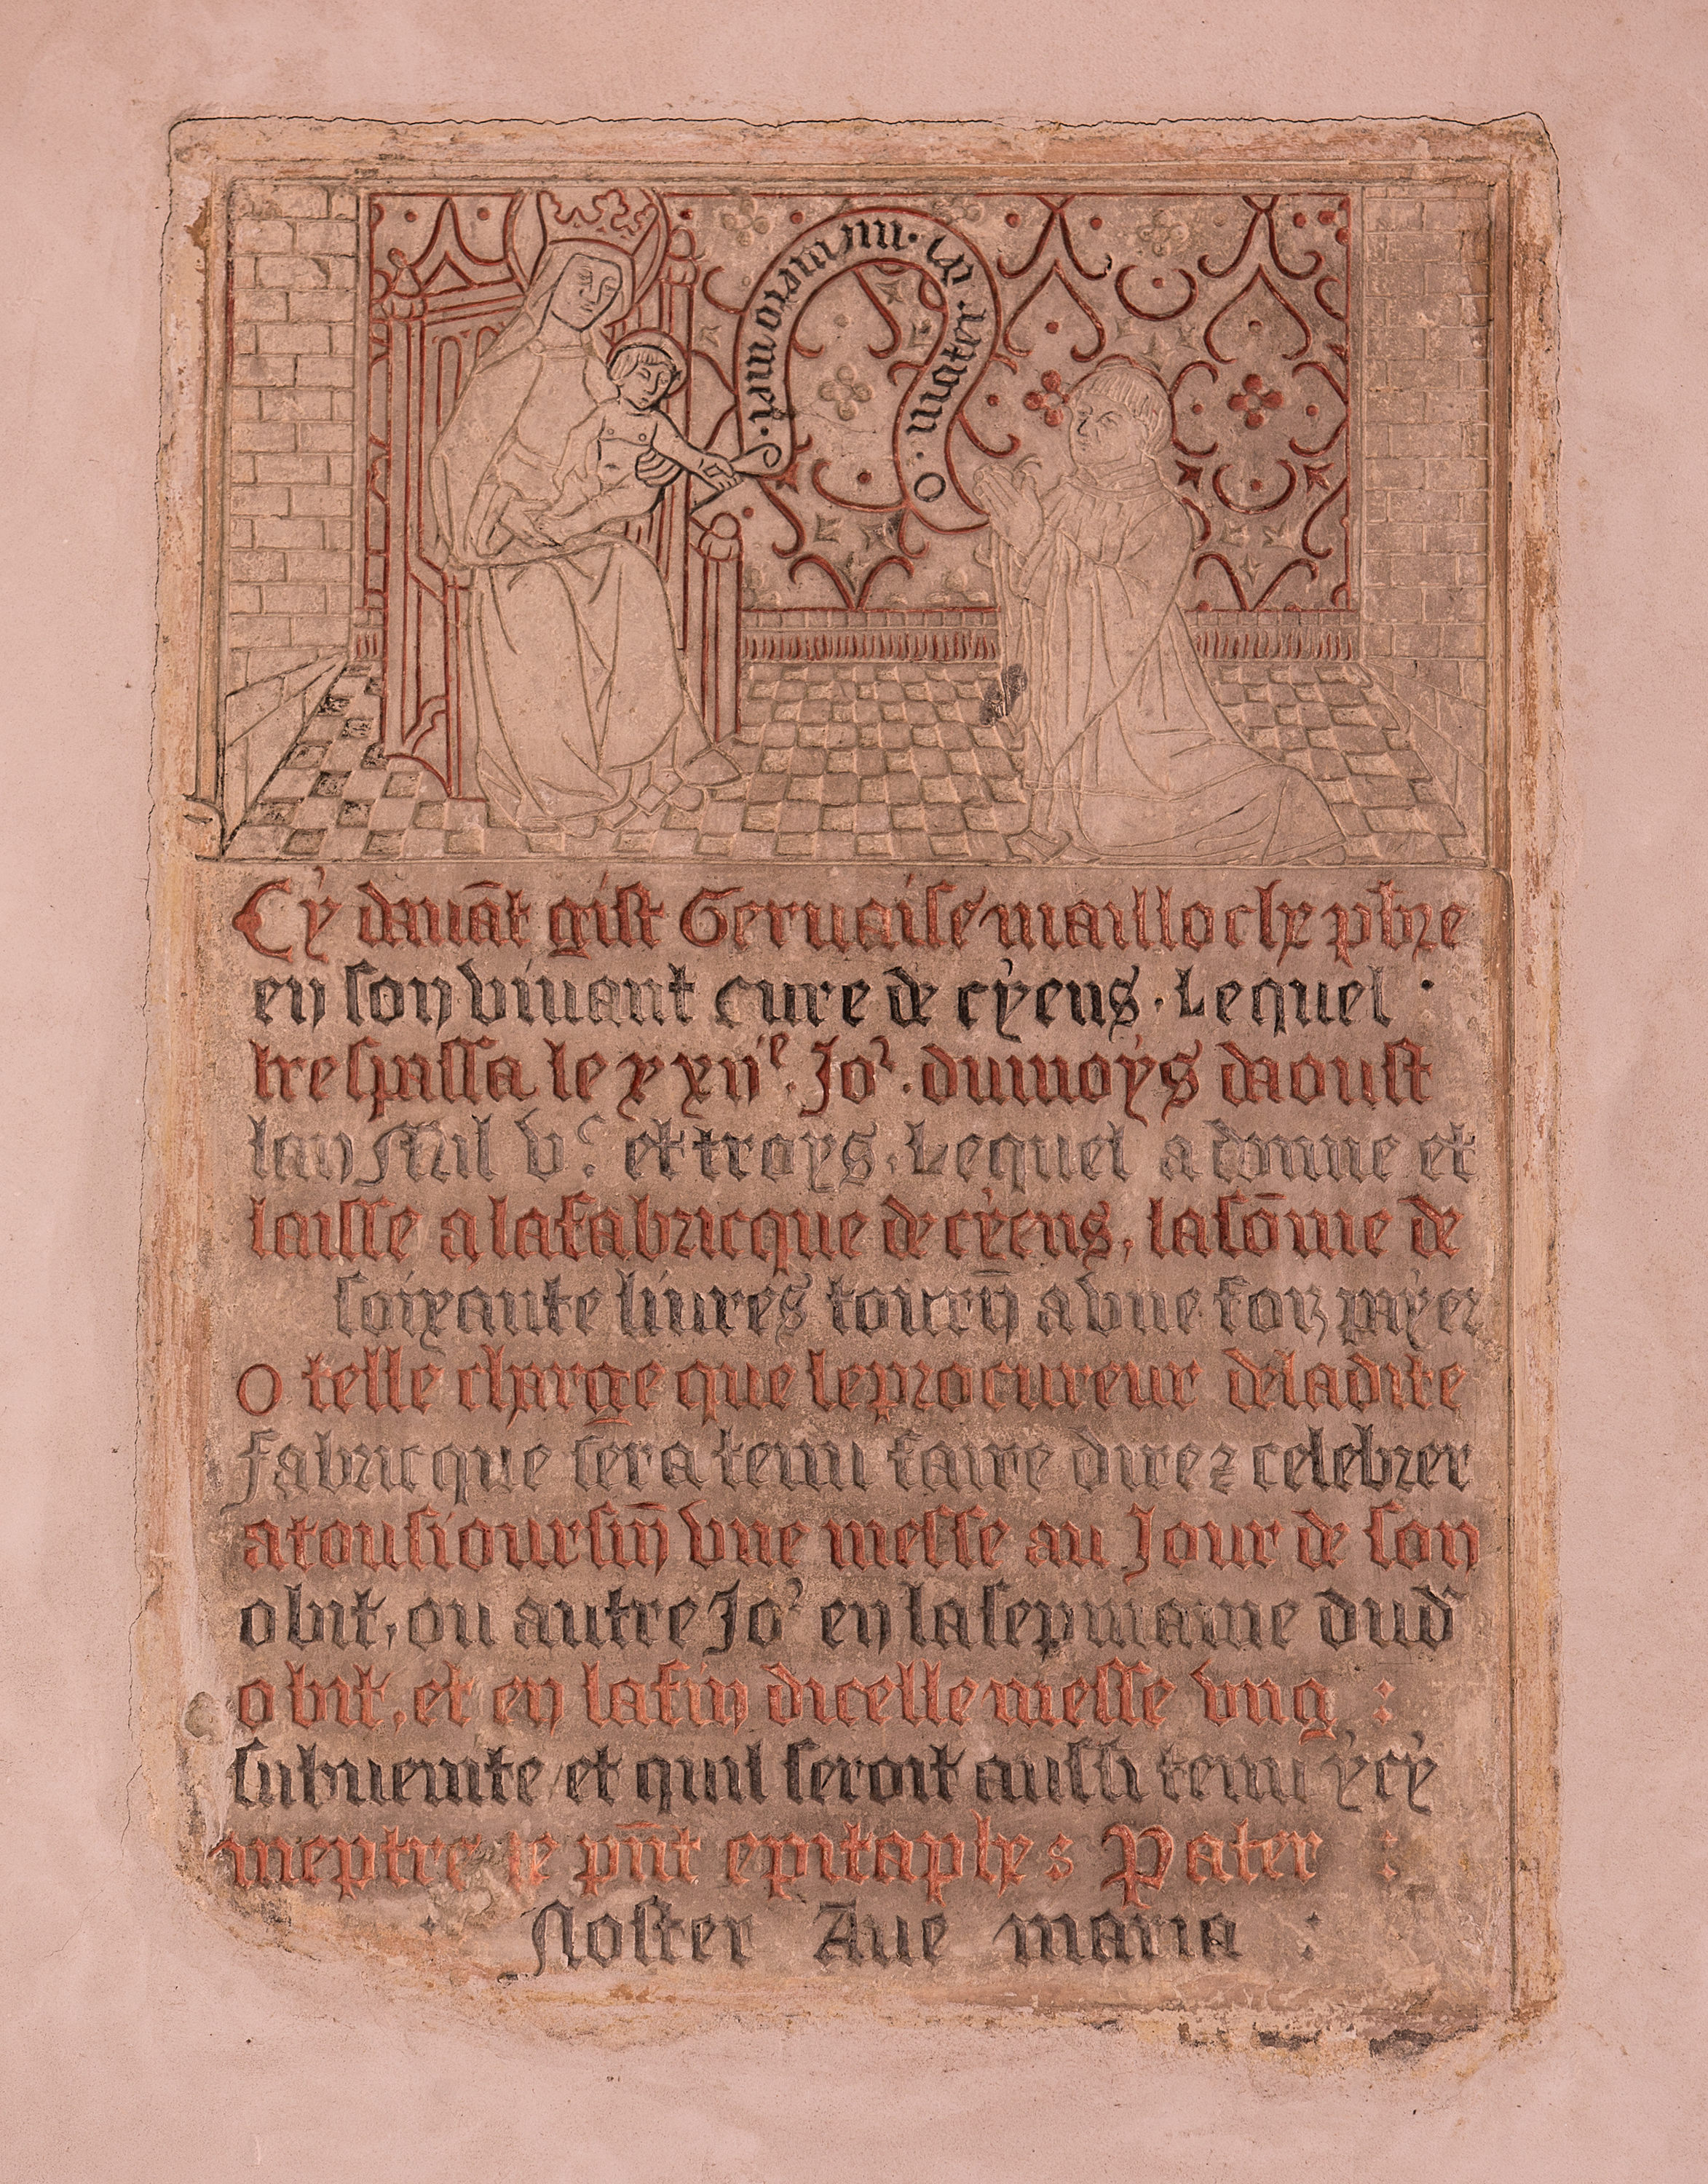 O mater dei memento mei
Cy dauāt gist Geruaise mailloche pbre
en son viuant cure de cyens. Lequel
trespassa le xxiie. Jor. du moys daoust
lan Mil vc. et troys. Lequel a donne et
laisse a la fabricque de cyens, la sōme de
soixante liures tourn̄ a vne foiz paÿer
O telle charge que le procureur de ladite
fabricque sera tenu faire dire ⁊ celebrer
a tousiours in̄ vne messe au Jour de son
obit, ou autre Jor en la sepmaine dud
obit, et en la fin dicelle messe vng :
subuenite et quil seroit aussi tenu ycy
meptre le pn̄t epitaphes Pater :
Noster Aue maria :